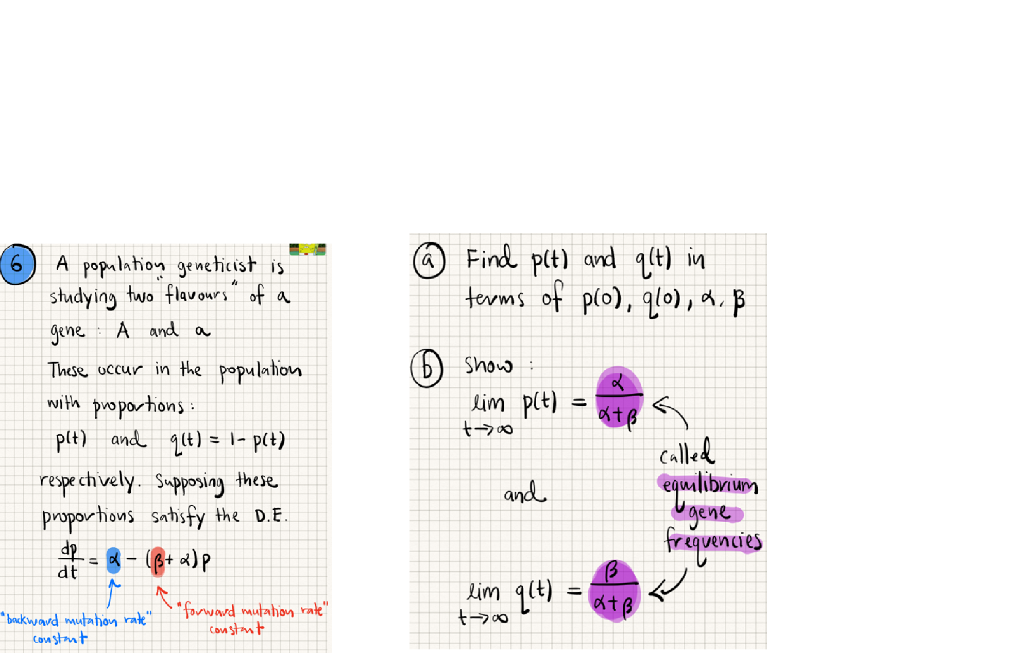 6 A population geneticist is
studying two "flavours" of a
gene : A and a
These occur in the population
with proportions :
p(t) and q(t) = 1 - p(t)
respectively. Supposing these
proportions satisfy the D.E.
dp/dt = α - (β + α) p
"backward mutation rate"
constant
"forward mutation rate"
constant
a Find p(t) and q(t) in
terms of p(0), q(0), α, β
b Show :
lim t→∞ p(t) = α/(α+β)
called
equilibrium
gene
frequencies
and
lim t→∞ q(t) = β/(α+β)